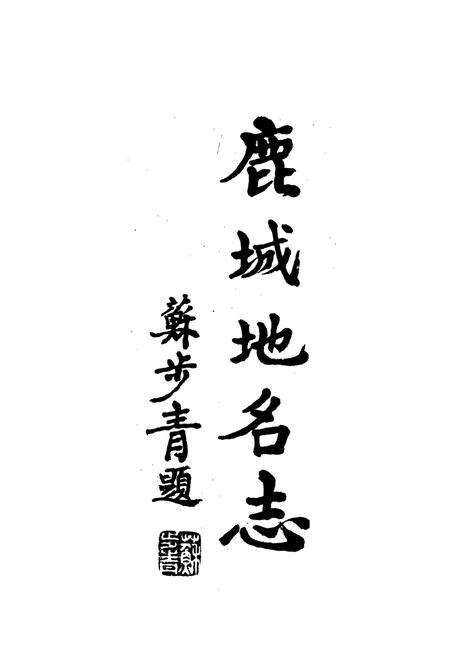 鹿城地名志
蘇步青題
蘇步青